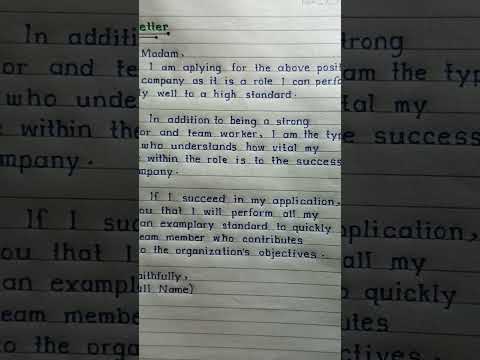 etter
Madam,
I am aplying for the above posit
company as it is a role I can perfo
y well to a high standard.
In addition to being a strong
or and team worker, I am the typ
who understands how vital my
within the role is to the success
mpany.
If I succeed in my application,
ou that I will perform all my
an examplary standard to quickly
eam member who contributes
o the organization's objectives.
aithfully,
ull Name)